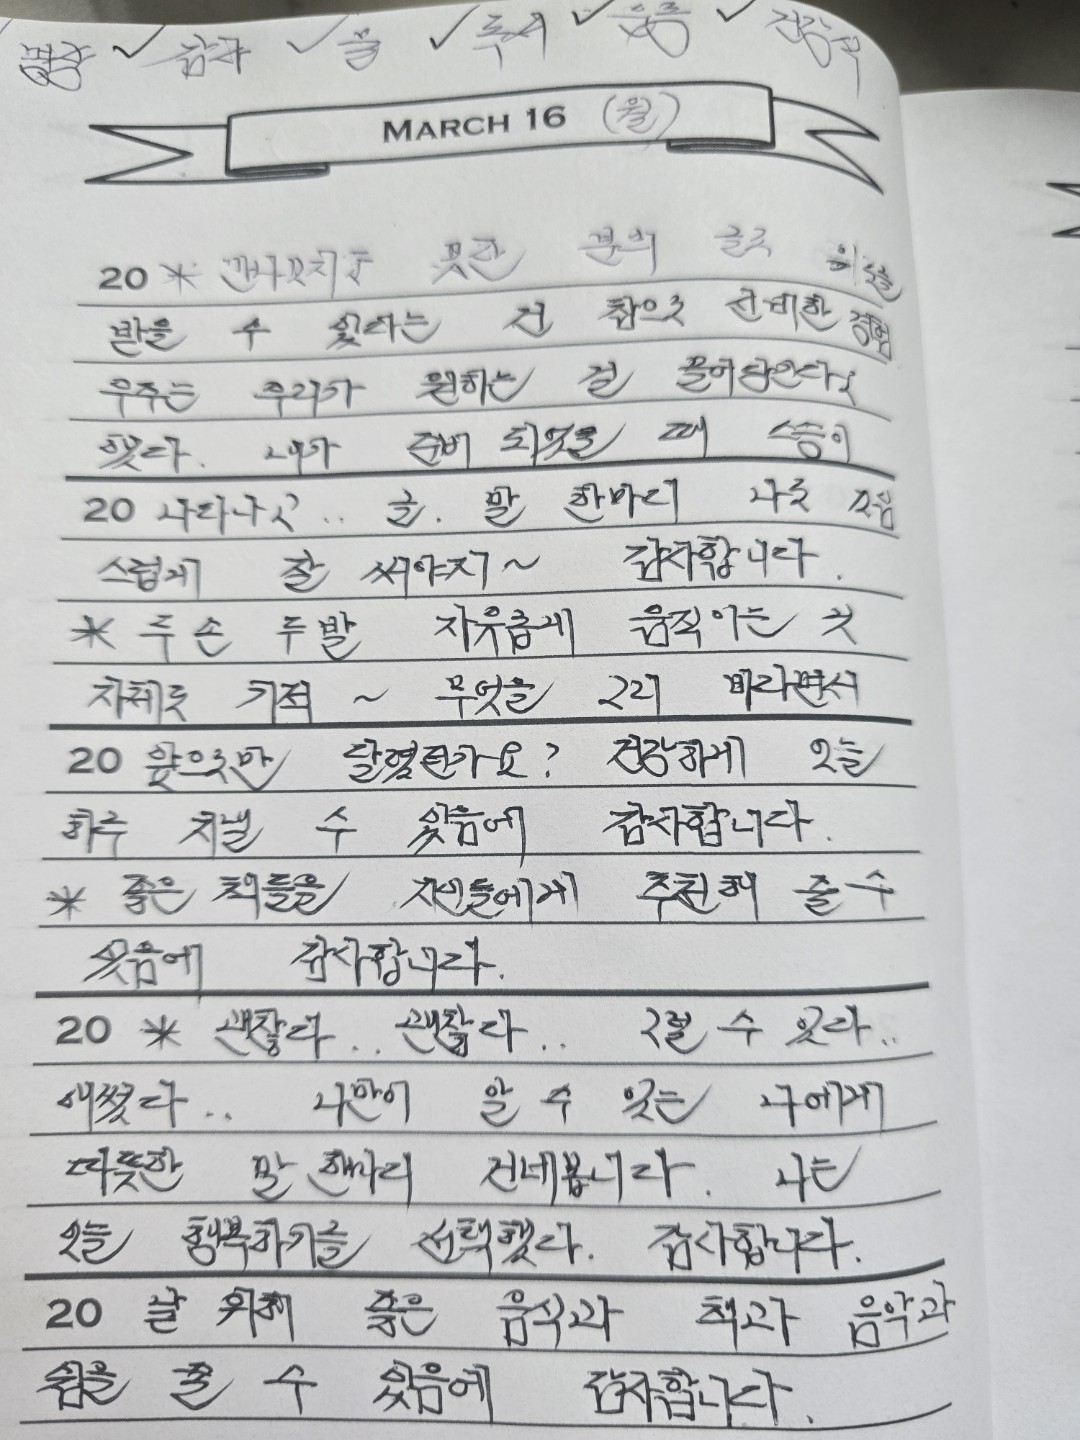 명상 ✓ 감사 ✓ 물 ✓ 독서 ✓ 운동 ✓
MARCH 16 (월)
20 * 만나보지도 못한 분의 글로 위로를
받을 수 있다는 건 참으로 신비한 경험
우주는 우리가 원하는 걸 끌어당긴다고
했다. 내가 준비 되었을 때 스승이
20 나타나고.. 글. 말 한마디 나로 조심
스럽게 잘 써야지~ 감사합니다.
* 두 손 두 발 자유롭게 움직이는 것
자체로 기적 ~ 무엇을 그리 바라면서
20 앞으로만 달렸던가요? 건강하게 오늘
하루 지낼 수 있음에 감사합니다.
* 좋은 책들을 지인들에게 추천해 줄 수
있음에 감사합니다.
20 * 괜찮다.. 괜찮다.. 그럴 수 있다..
애썼다.. 나만이 알 수 있는 나에게
따뜻한 말 한마디 건네봅니다. 나는
오늘 행복하기를 선택했다. 감사합니다.
20 날 위해 좋은 음식과 책과 음악과
쉼을 줄 수 있음에 감사합니다.